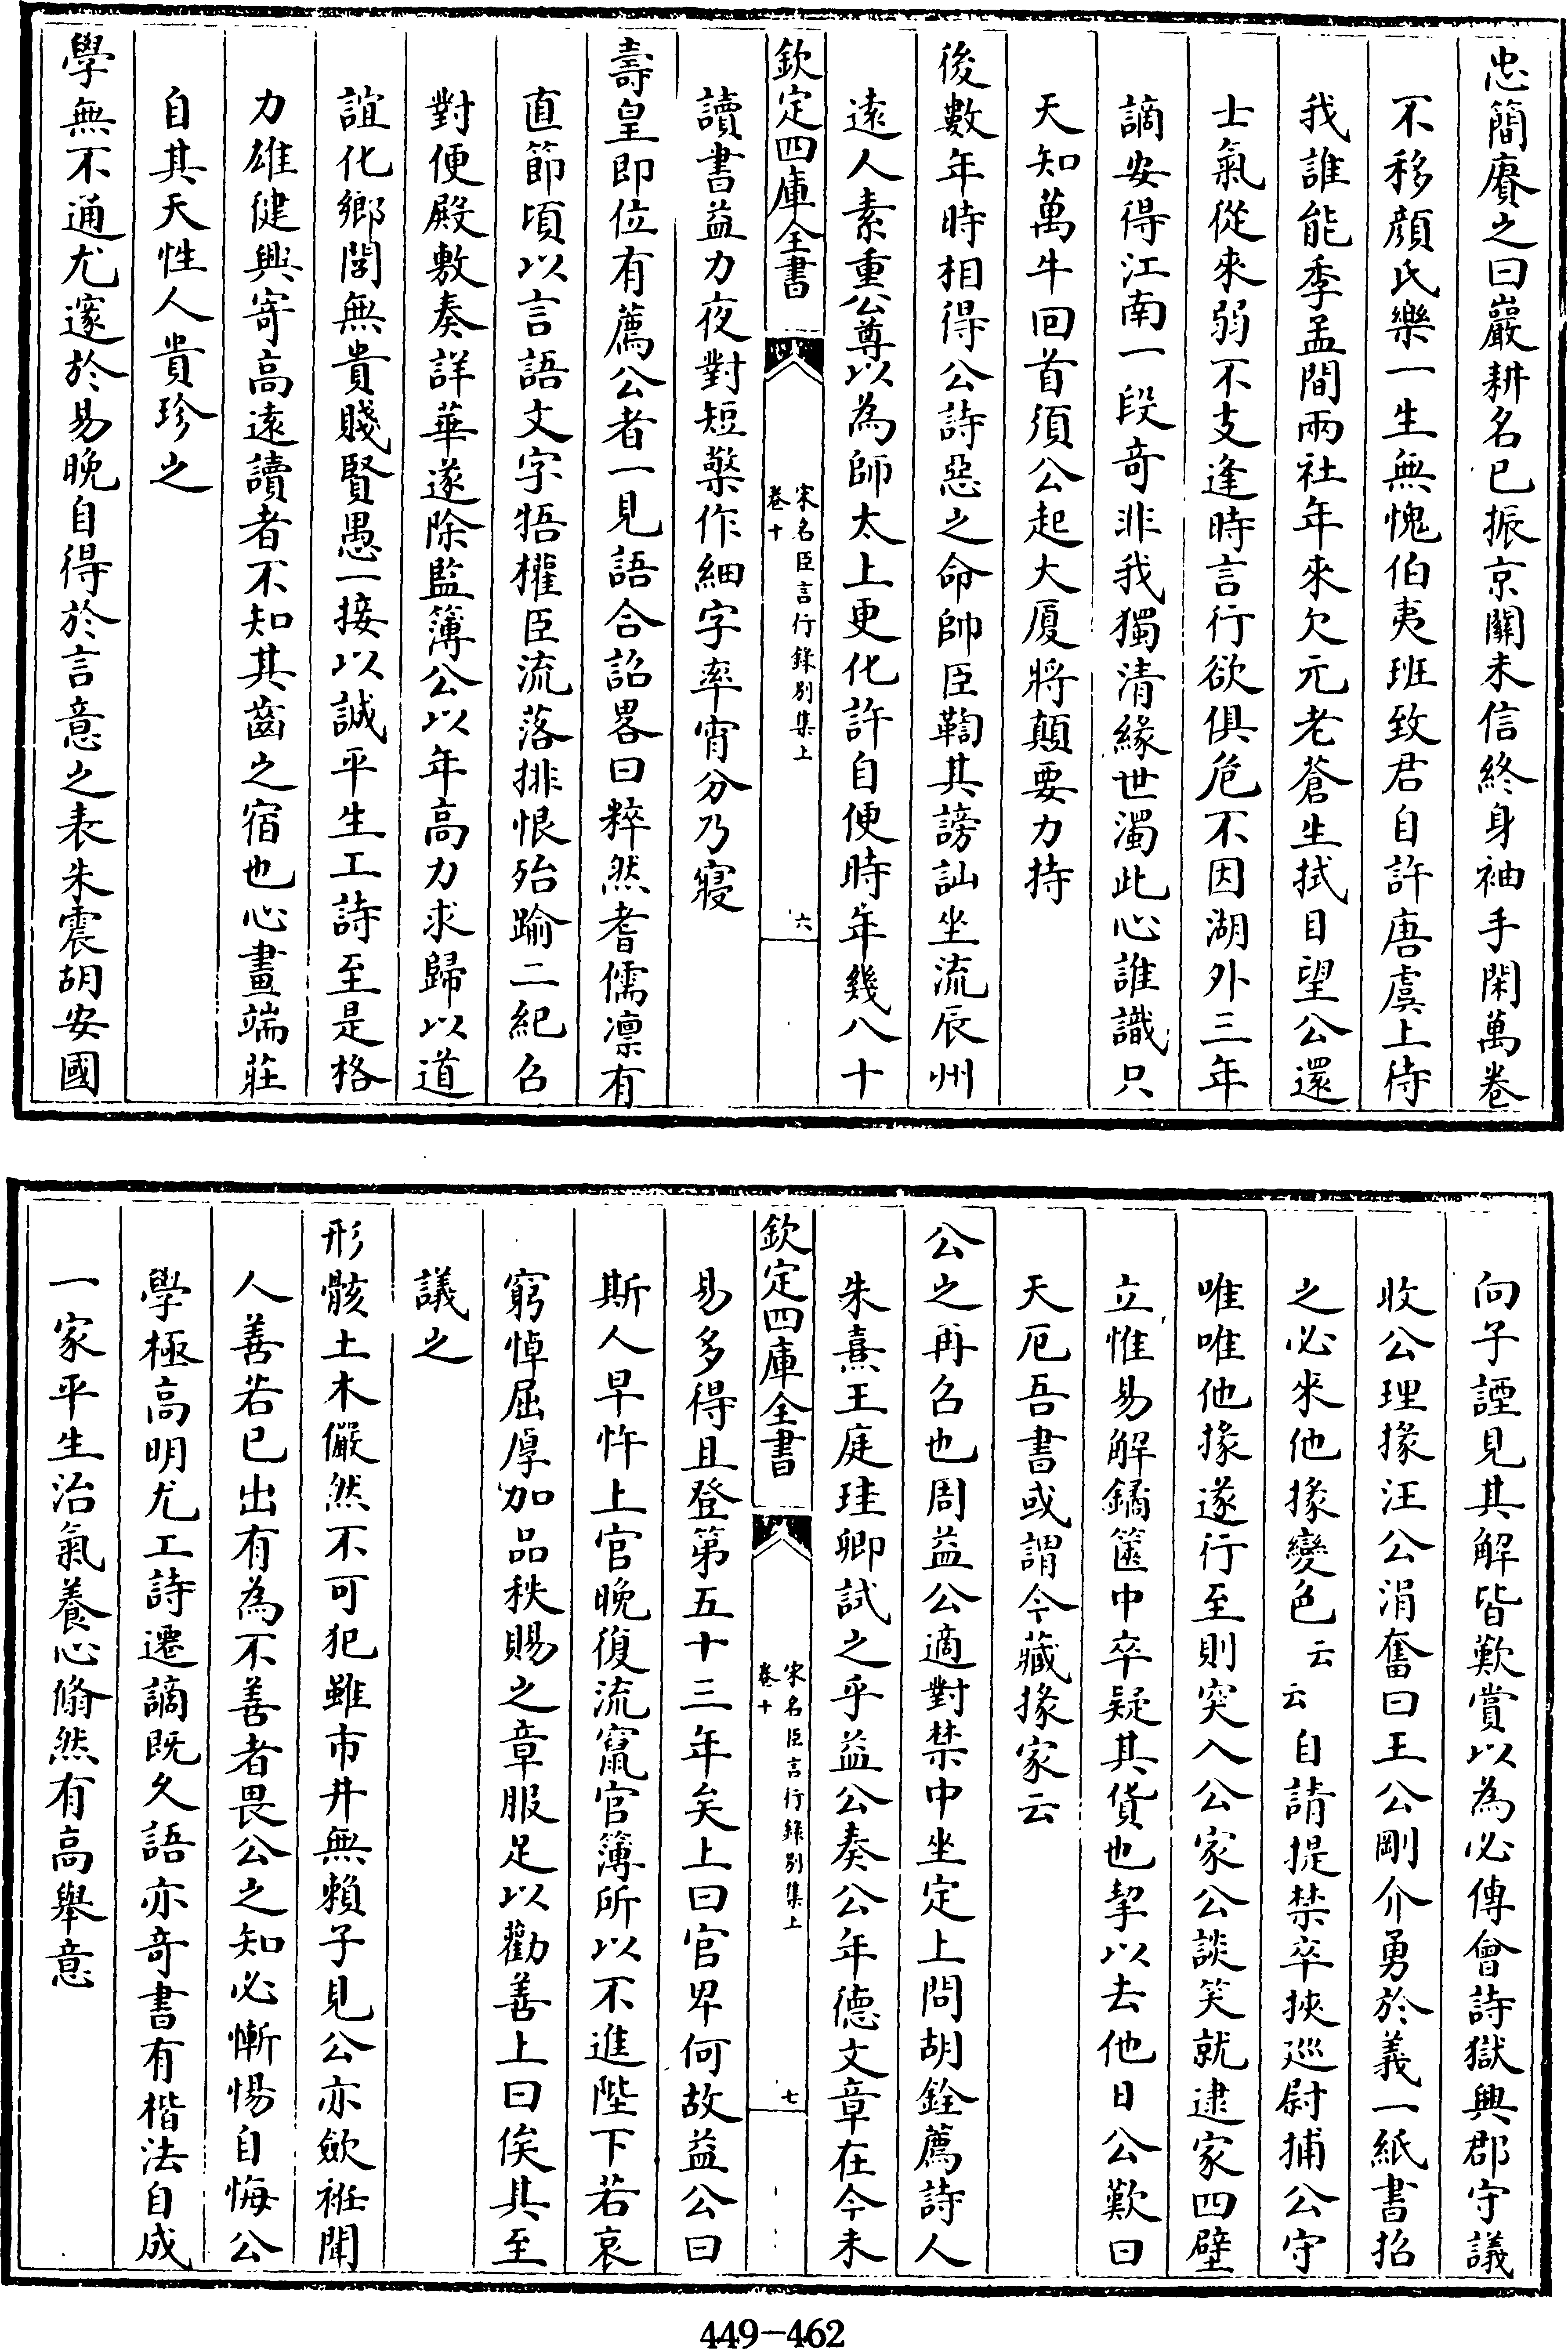 忠簡賡之曰巖耕名已振京關未信終身袖手閑萬卷
不移顔氏樂一生無愧伯夷班致君自許唐虞上待
我誰能季孟間兩社年來欠元老蒼生拭目望公還
士氣從來弱不支逢時言行欲俱危不因湖外三年
謫安得江南一段奇非我獨清緣世濁此心誰識只
天知萬牛回首須公起大厦將顛要力持
後數年時相得公詩惡之命帥臣鞫其謗訕坐流辰州
逺人素重公尊以為師太上更化許自便時年幾八十
欽定四庫全書
宋名臣言行錄别集上
卷十
六
讀書益力夜對短檠作細字率宵分乃寢
壽皇即位有薦公者一見語合詔畧曰粹然耆儒凛有
直節頃以言語文字牾權臣流落排恨殆踰二紀召
對便殿敷奏詳華遂除監簿公以年高力求歸以道
誼化鄉閭無貴賤賢愚一接以誠平生工詩至是格
力雄健興寄高遠讀者不知其齒之宿也心畫端莊
自其天性人貴珍之
學無不通尤邃於易晚自得於言意之表朱震胡安國
向子諲見其解皆歎賞以為必傳會詩獄興郡守議
收公理掾汪公涓奮曰王公剛介勇於義一紙書招
之必來他掾變色云云自請提禁卒挾廵尉捕公守
唯唯他掾遂行至則突入公家公談笑就逮家四壁
立惟易解鐍篋中卒疑其貨也挈以去他日公歎曰
天厄吾書或謂今藏掾家云
公之再召也周益公適對禁中坐定上問胡銓薦詩人
朱熹王庭珪卿試之乎益公奏公年德文章在今未
欽定四庫全書
宋名臣言行錄别集上
卷十
七
易多得且登第五十三年矣上曰官卑何故益公曰
斯人早忤上官晚復流竄官簿所以不進陛下若哀
窮悼屈厚加品秩賜之章服足以勸善上曰俟其至
議之
形骸土木儼然不可犯雖市井無賴子見公亦歛衽聞
人善若已出有為不善者畏公之知必慚惕自悔公
學極高明尤工詩遷謫既久語亦奇書有楷法自成
一家平生治氣養心翛然有高舉意
449-462